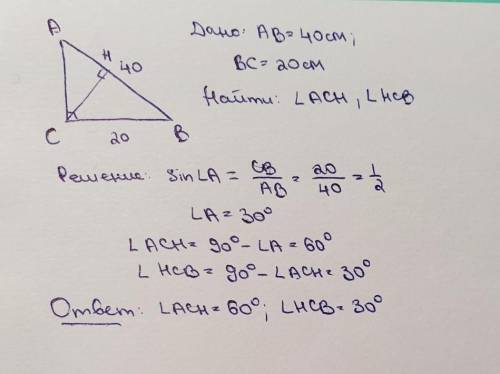 A
H
40
C
20
B
Дано: AB = 40см;
BC = 20см
Найти: ∠ACH, ∠HCB
Решение: sin∠A = CB/AB = 20/40 = 1/2
∠A = 30°
∠ACH = 90° - ∠A = 60°
∠HCB = 90° - ∠ACH = 30°
Ответ: ∠ACH = 60°; ∠HCB = 30°